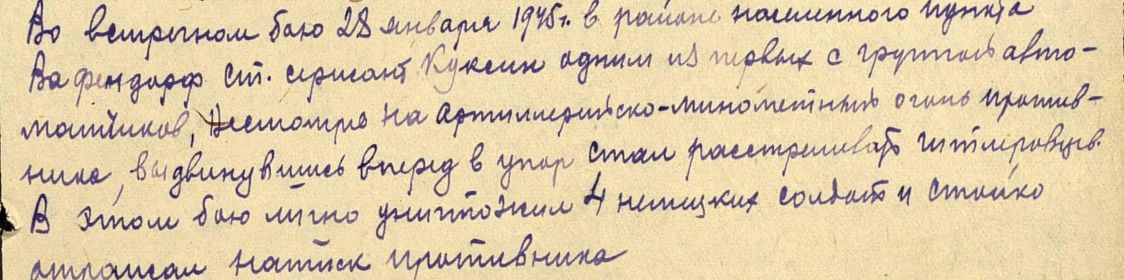 Во встречном бою 28 января 1945 г. в районе населенного пункта
Вафендорф ст. сержант Куксин одним из первых с группой авто-
матчиков, несмотря на артиллерийско-минометный огонь против-
ника, выдвинувшись вперед в упор стал расстреливать гитлеровцев.
В этом бою лично уничтожил 4 немецких солдат и стойко
отражал натиск противника